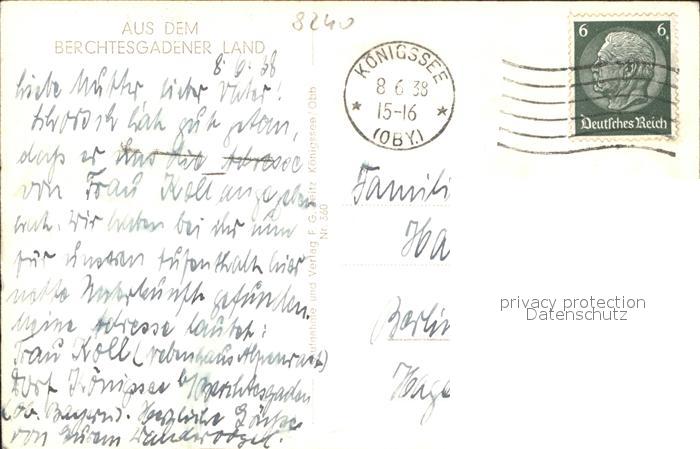 AUS DEM
BERCHTESGADENER LAND
8240
8.6.38
Liebe Mutter, lieber Vater!
hat gut getan,
daß er das die Adresse
von Frau Koll angegeben
hat. Wir haben bei ihr nun
für unseren Aufenthalt hier
nette Unterkunft gefunden.
Meine Adresse lautet:
Frau Koll (Nebenhaus Alpenrast)
Dorf Königssee b/Berchtesgaden
(Ob. Bayern). Herzliche Grüße
von Eurem Wandervogel.
Aufnahme und Verlag F. G. Zeitz Königssee/Obb
Nr. 360
KÖNIGSSEE
8 6 38
15-16
(OBY.)
6 6
Deutsches Reich
Famili
Ha
Berlin
Hage
privacy protection
Datenschutz